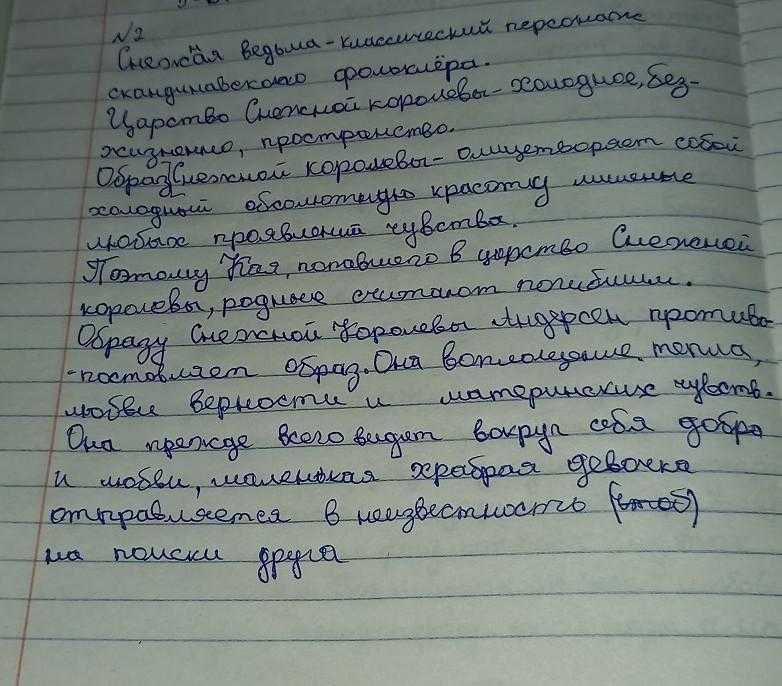 №2
Снежная ведьма - классический персонаж
скандинавского фольклёра.
Царство Снежной королевы - холодное, без-
жизненно, пространство.
Образ Снежной королевы - олицетворяет собой
холодный обсолютную красоту лишеные
любых проявлений чувства.
Поэтому Кая, попавшего в царство Снежной
королевы, родные считают погибшим.
Образу Снежной Королевы Андерсен противо-
-поставляет образ. Она воплощение тепла,
любви верности и материнских чувств.
Она прежде всего видет вокруг себя добра
и любви, маленькая храбрая девочка
отправляется в неизвестность (чтоб)
на поиски друга